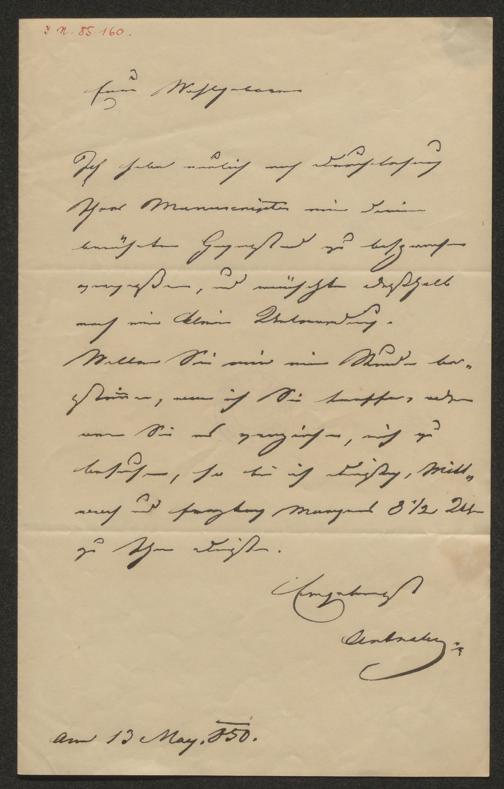 I. N. 85 160.
Euer Wohlgeboren
Ich habe neulich nach Durchlesung
Ihres Manuscriptes mir einen
berührten Gegenstand zu besprechen
vergessen, und wünschte deßhalb
noch eine kleine Unterredung.
Wollen Sie mir eine Stunde be-
stimmen, wo ich Sie treffe, oder
wenn Sie es vorziehen, mich zu
besuchen, so bin ich Dinstag, Mitt-
woch und Freytag Morgens 8 1/2 Uhr
zu Ihren Diensten.
Ergebenst
am 13 May. 850.